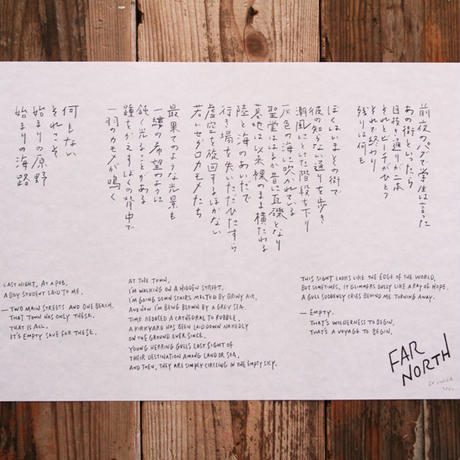 前夜パブで学生は言った
あの街といったら
目抜き通りが二本
それとビーチがひとつ
それで終わり
残りは何も
ぼくはいまその街で
彼の知らない通りを歩き
潮風にとけた階段を下り
灰色の海に吹かれている
聖堂ははるか昔に瓦礫となり
墓地は以来裸のまま横たわる
陸と海のあいだで
行き場を失いただひたすら
虚空を旋回するほかない
若いセグロカモメたち
最果てのような光景も
一縷の希望のように
鈍く光ることがある
踵をかえすぼくの背中で
一羽のカモメが鳴く
何もない
それこそ
始まりの原野
始まりの海路
LAST NIGHT, AT A PUB,
A BOY STUDENT SAID TO ME,
— TWO MAIN STREETS AND ONE BEACH.
THAT TOWN HAS ONLY THESE.
THAT IS ALL.
IT'S EMPTY SAVE FOR THESE.
AT THE TOWN,
I'M WALKING ON A HIDDEN STREET,
I'M GOING DOWN STAIRS MELTED BY BRINY AIR,
AND NOW I'M BEING BLOWN BY A GRAY SEA.
TIME REDUCED A CATHEDRAL TO RUBBLE,
A KIRKYARD HAS BEEN LAID DOWN NAKEDLY
ON THE GROUND EVER SINCE.
YOUNG HERRING GULLS LOST SIGHT OF
THEIR DESTINATION AMONG LAND OR SEA,
AND THEN, THEY ARE SIMPLY CIRCLING IN THE EMPTY SKY.
THIS SIGHT LOOKS LIKE THE EDGE OF THE WORLD,
BUT SOMETIMES, IT GLIMMERS DULLY LIKE A RAY OF HOPE.
A GULL SUDDENLY CRIES BEHIND ME TURNING AWAY.
— EMPTY.
THAT'S WILDERNESS TO BEGIN,
THAT'S A VOYAGE TO BEGIN.
FAR
NORTH